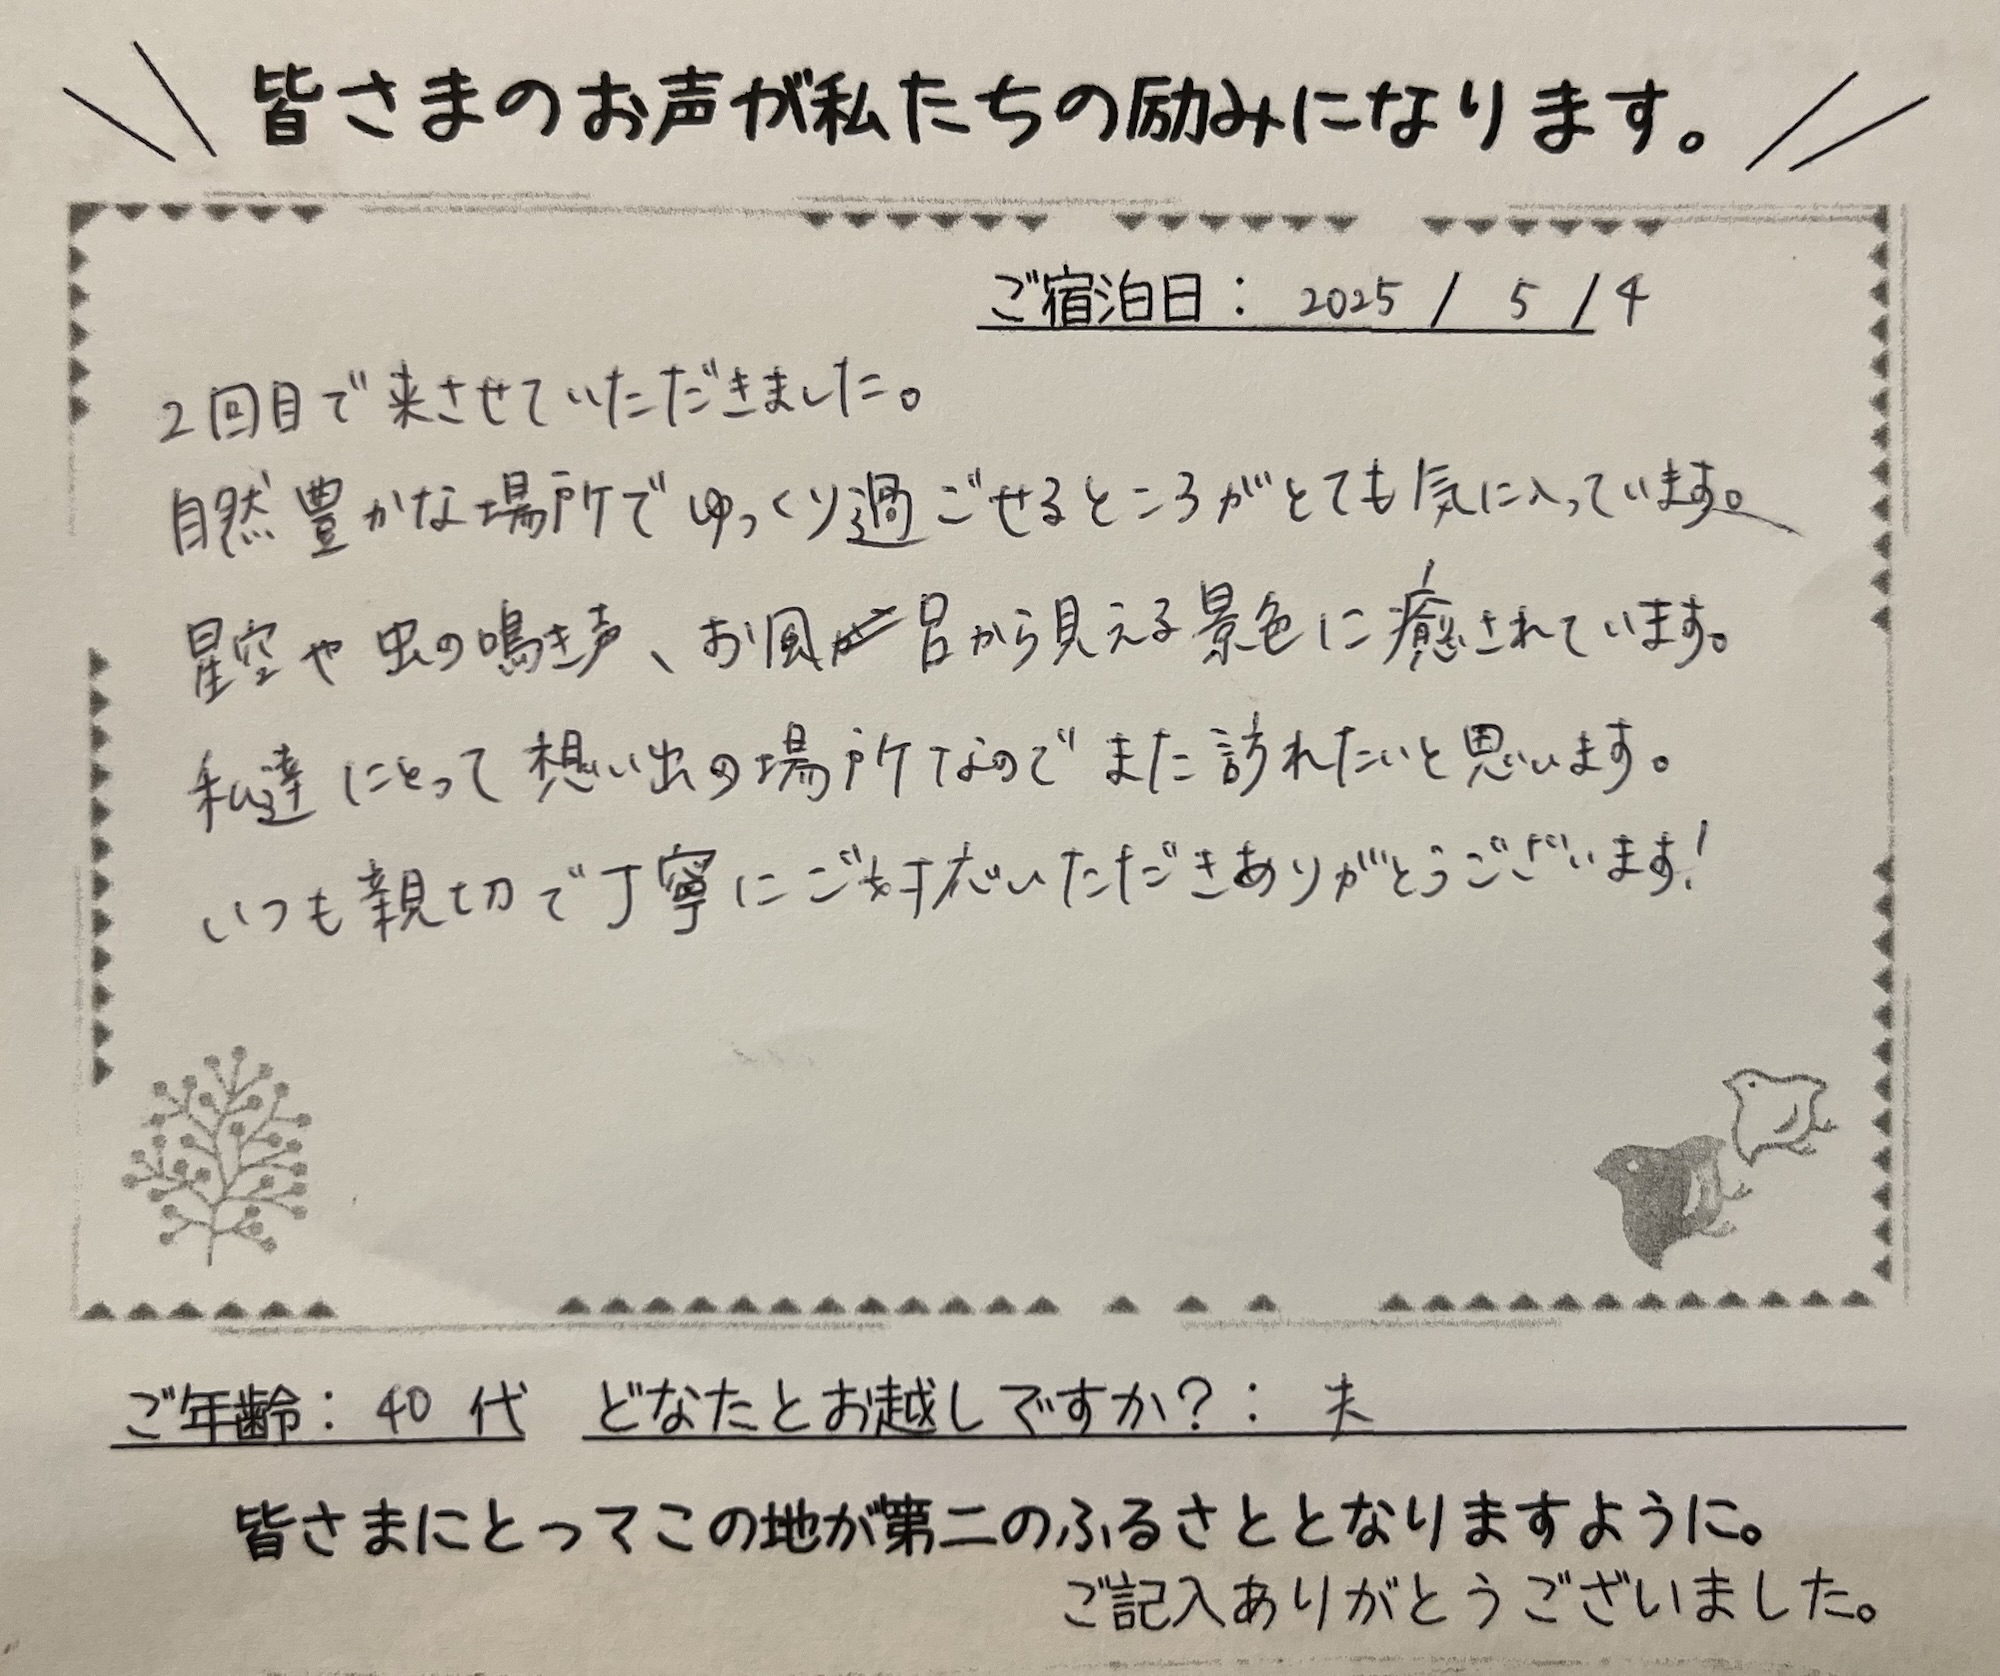 皆さまのお声が私たちの励みになります。
ご宿泊日： 2025 / 5 / 4
2回目で来させていただきました。
自然豊かな場所でゆっくり過ごせるところがとても気に入っています。
星空や虫の鳴き声、お風呂から見える景色に癒されています。
私達にとって想い出の場所なのでまた訪れたいと思います。
いつも親切で丁寧にご対応いただきありがとうございます！
ご年齢： 40 代 どなたとお越しですか？： 夫
皆さまにとってこの地が第二のふるさととなりますように。
ご記入ありがとうございました。